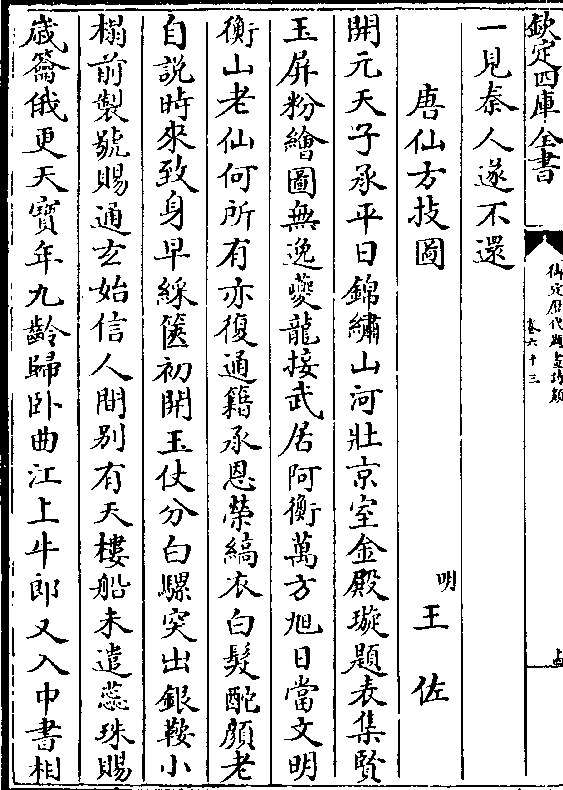 欽定四庫全書
御定歷代題畫詩類
卷六十三
一見秦人遂不還
唐仙方技圖
明王佐
開元天子承平日錦繡山河壯京室金殿璇題表集賢
玉屏粉繪圖無逸夔龍接武居阿衡萬方旭日當文明
衡山老仙何所有亦復通籍承恩榮縞衣白髮酡顏老
自說時來致身早綵篋初開玉仗分白騾突出銀鞍小
榻前製號賜通玄始信人間別有天樓船未遣蕊珠賜
歲籥俄更天寶年九齡歸卧曲江上牛郎又入中書相